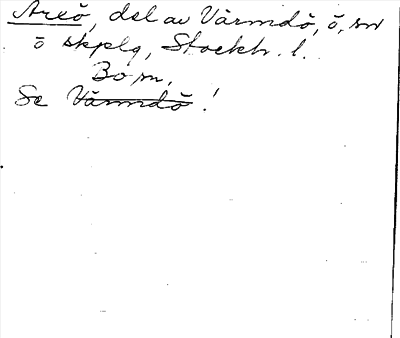 Areö, del av Värmdö, ö, sn
o skplg, Stockh. l.
Bo sn.
Se Värmdö!